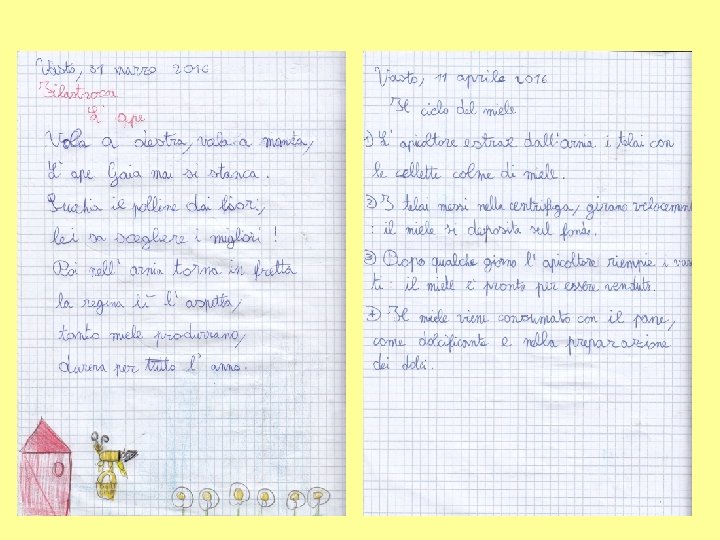 Vasto, 31 marzo 2016
Filastrocca
L' ape
Vola a destra, vola a manca,
L' ape Gaia mai si stanca.
Succhia il polline dai fiori,
lei sa scegliere i migliori!
Poi nell' arnia torna in fretta
la regina lì l' aspetta,
tanto miele produrranno,
durerà per tutto l' anno.
Vasto, 11 aprile 2016
Il ciclo del miele
1) L' apicoltore estrae dall'arnia i telai con
le cellette colme di miele.
2) I telai messi nella centrifuga, girano velocement
: il miele si deposita sul fondo.
3) Dopo qualche giorno l' apicoltore riempie i vaset
ti : il miele è pronto per essere venduto.
4) Il miele viene consumato con il pane,
come dolcificante e nella preparazione
dei dolci.